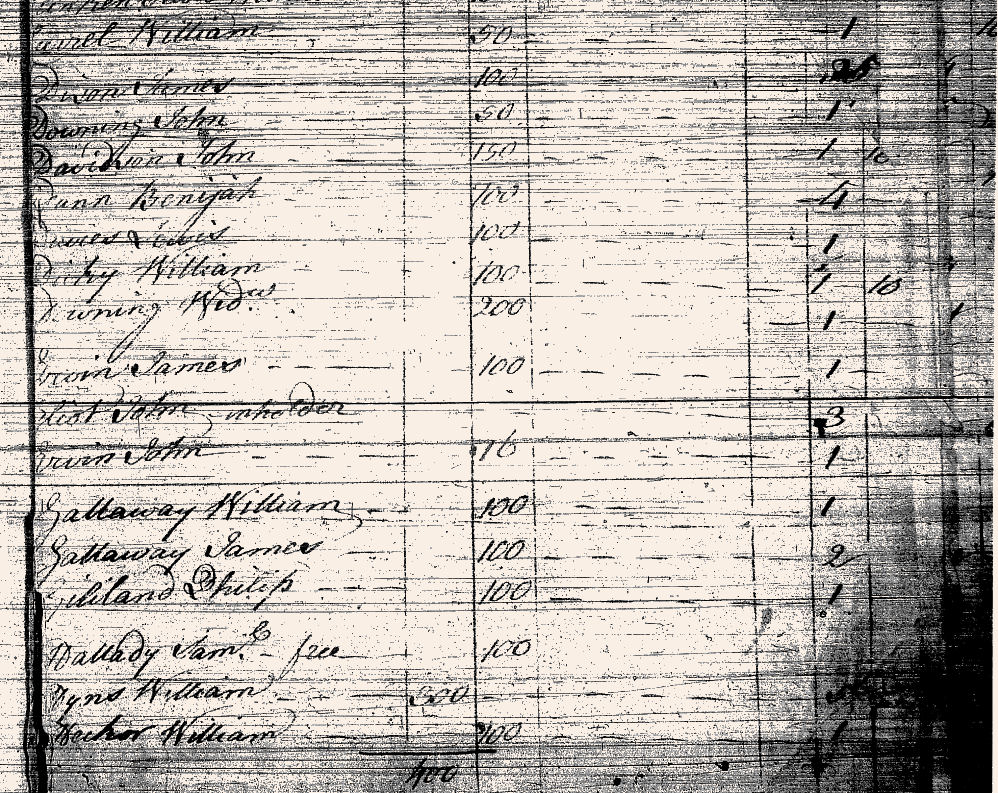 William 50 1
Dixon James 100
Downing John 50 1
Davidson John 150 1 10
Dunn Benijah 100 4
Davies Lewis 100 1
Dicky William 100 1 10
Downing Widw. 200 1
Irvin James 100 1
Eliot John inholder 3
Irvin John 16 1
Gallaway William 100 1
Gallaway James 100 2
Gililand Philip 100 1
Hallady Saml. free 100
Hyns William 300
William 100 1
400